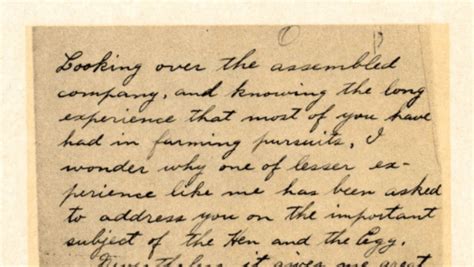 Looking over the assembled
company, and knowing the long
experience that most of you have
had in farming pursuits, I
wonder why one of lesser ex-
perience like me has been asked
to address you on the important
subject of the Hen and the Egg.
Nevertheless it gives me great